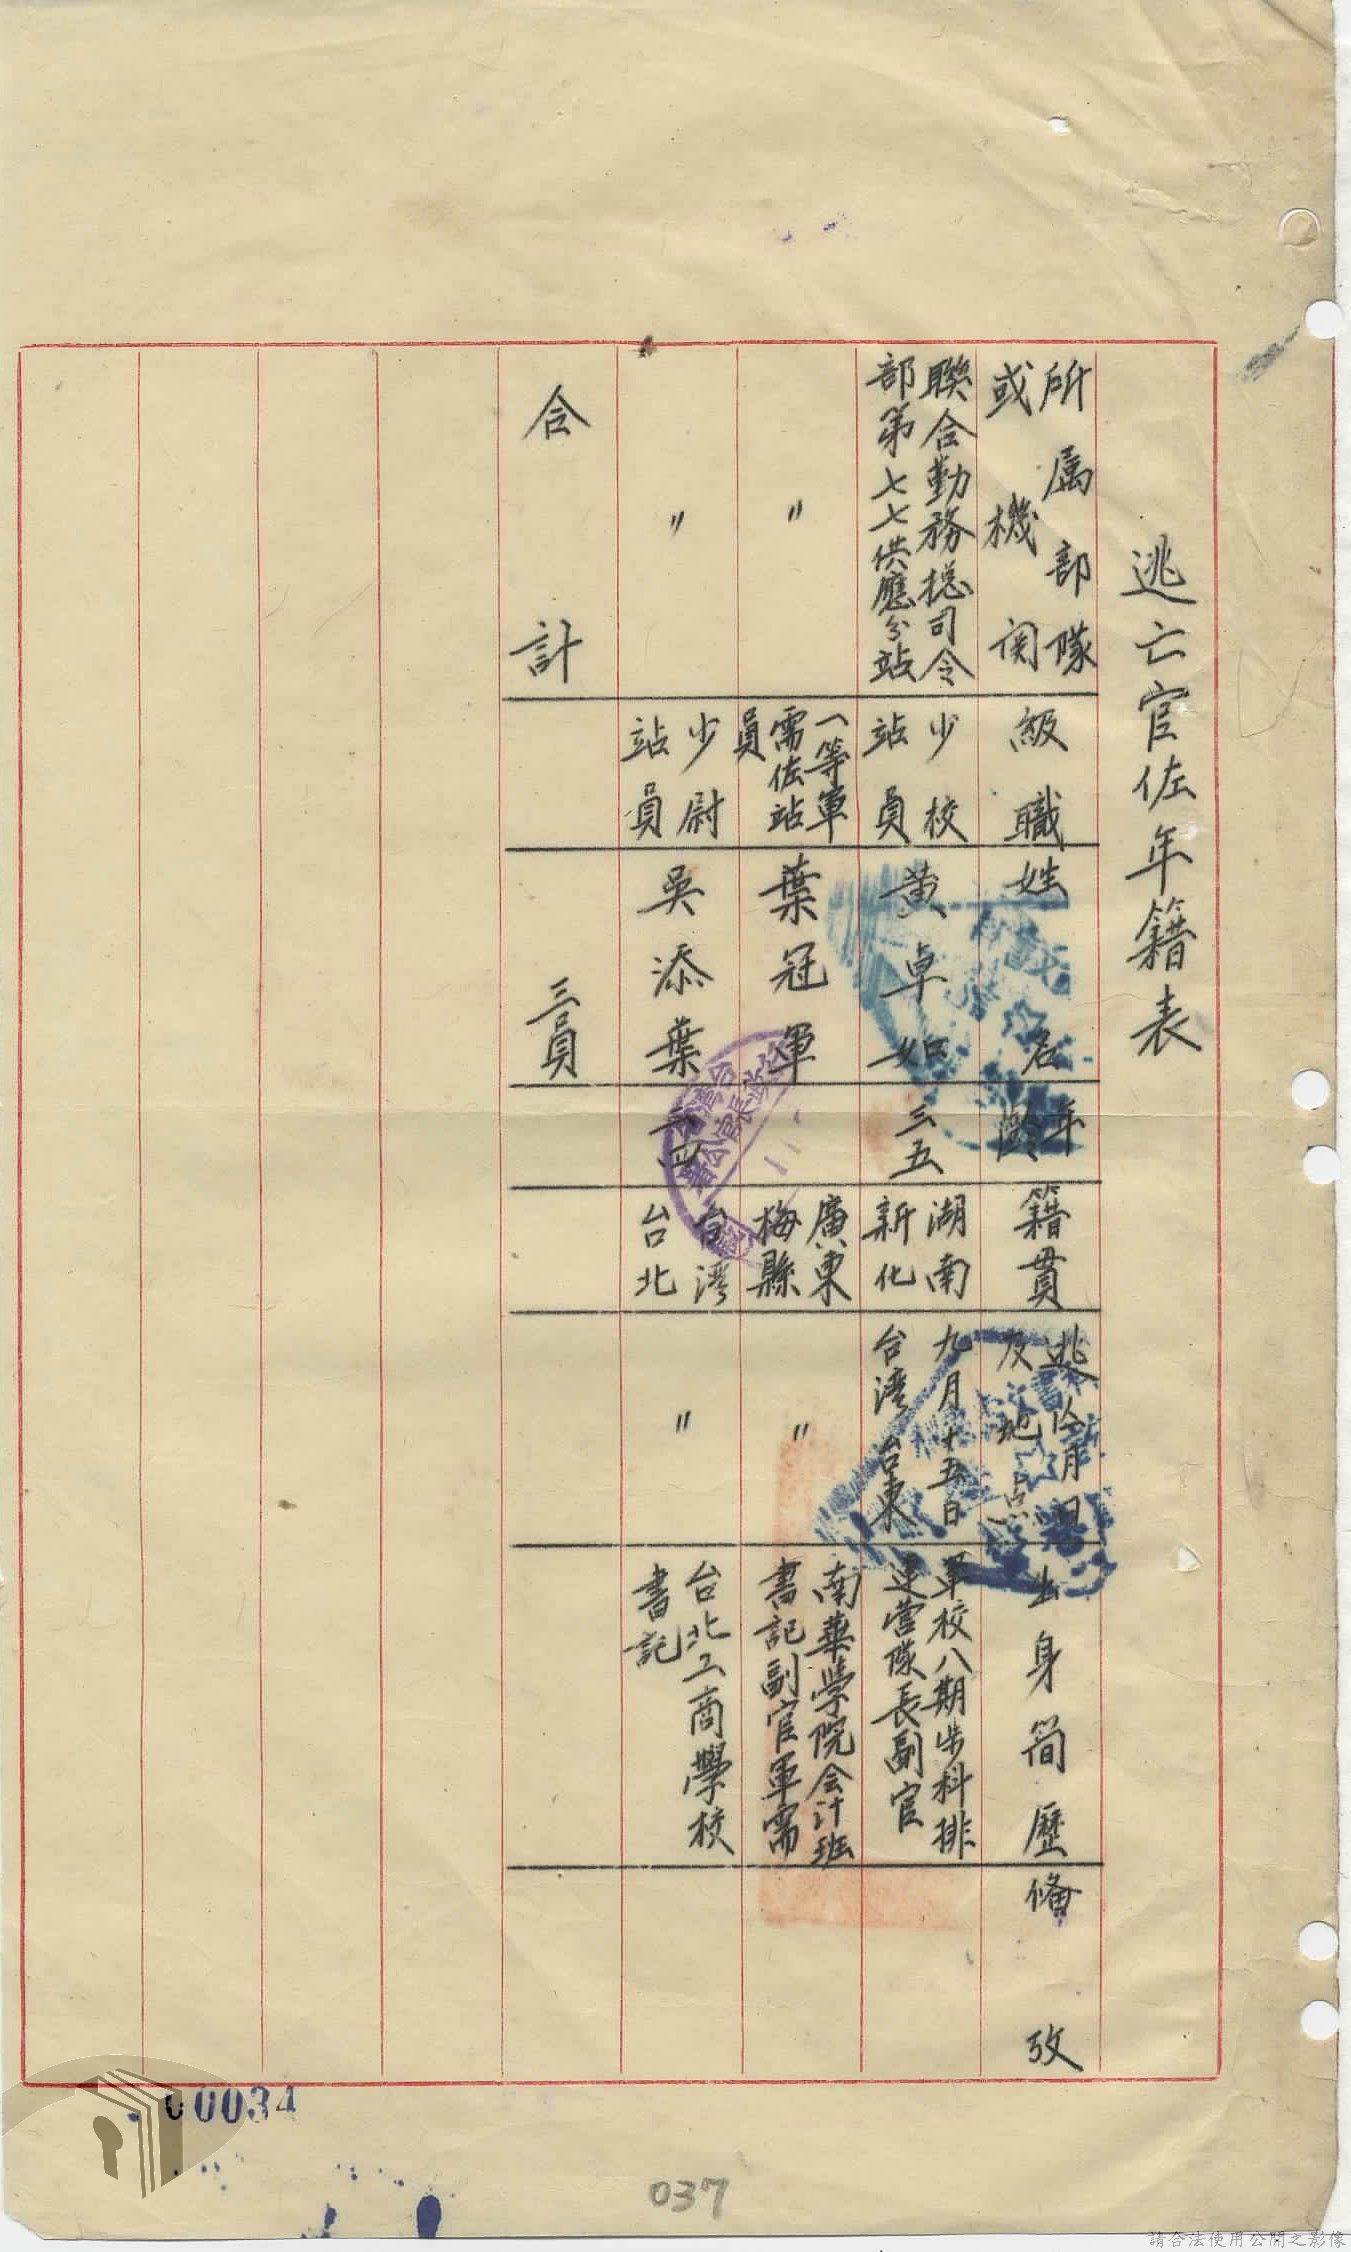 逃亡官佐年籍表
所屬部隊
或機関
級職
姓名
年齡
籍貫
逃亡月日
及地点
出身簡歷
俻攷
聯合勤務总司令
部第七七供應分站
少校
站員
黄卓如
三五
湖南
新化
九月十五日
台湾台東
軍校八期步科排
連營隊長副官
〃
一等軍
需佐站
員
葉冠軍
廣東
梅縣
〃
南華學院会计班
書記副官軍需
〃
少尉
站員
吳添葉
二四
台湾
台北
〃
台北工商學校
書記
合計
三員
00034
037
請合法使用公開之影像